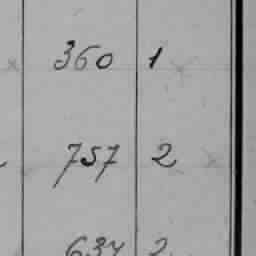 360 1
757 2
637 2